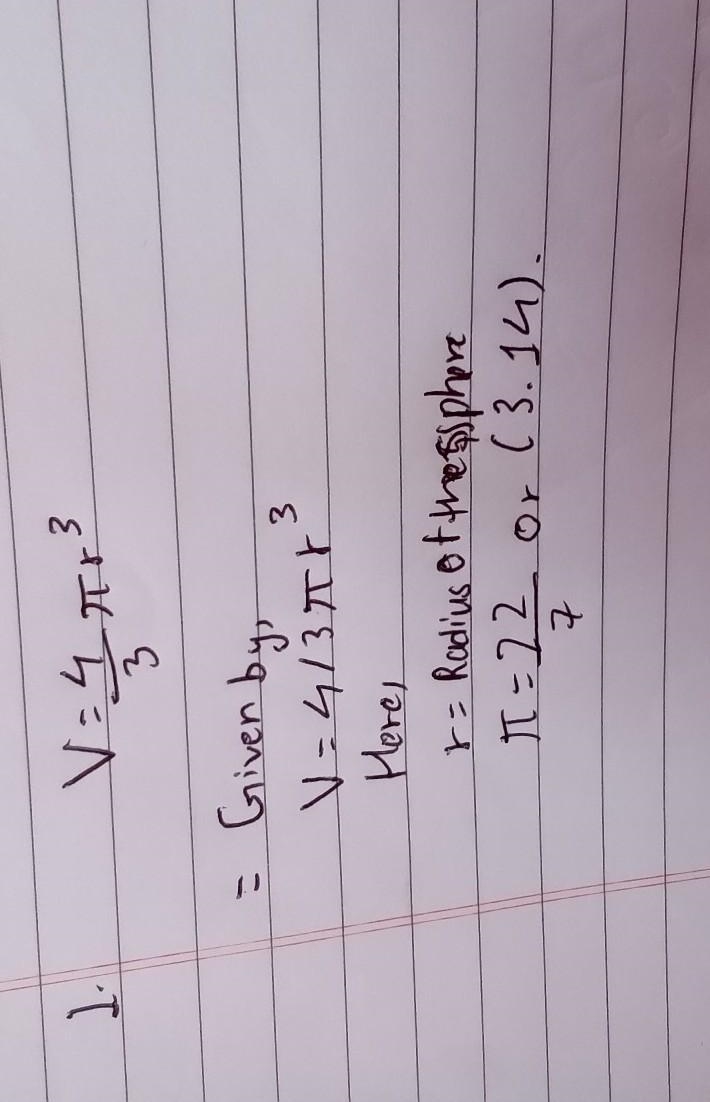 1. V = 4/3 πr³
= Given by,
V = 4/3 πr³
Here,
r = Radius of the sphere
π = 22/7 or (3.14).